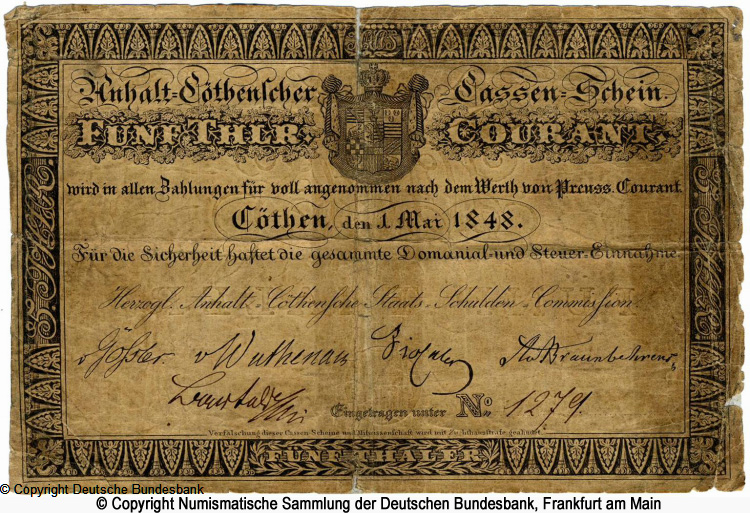 Anhalt-Cöthenscher Cassen-Schein.
FÜNF THLR. COURANT.
wird in allen Zahlungen für voll angenommen nach dem Werth von Preuss. Courant.
Cöthen, den 1. Mai 1848.
Für die Sicherheit haftet die gesammte Domanial- und Steuer-Einnahme.
Herzogl. Anhalt-Cöthensche Staats-Schulden-Commission.
v Gössler. v Wuthenau Av Braunbehrens
Eingetragen unter No. 1279.
Verfälschung dieser Cassen-Scheine wird mit Zuchthausstrafe geahndet.
FÜNF THALER
© Copyright Deutsche Bundesbank
© Copyright Numismatische Sammlung der Deutschen Bundesbank, Frankfurt am Main